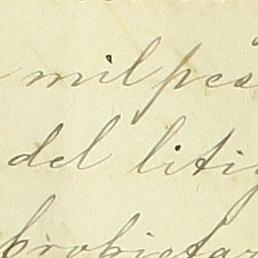 mil pes
del litig
propietar